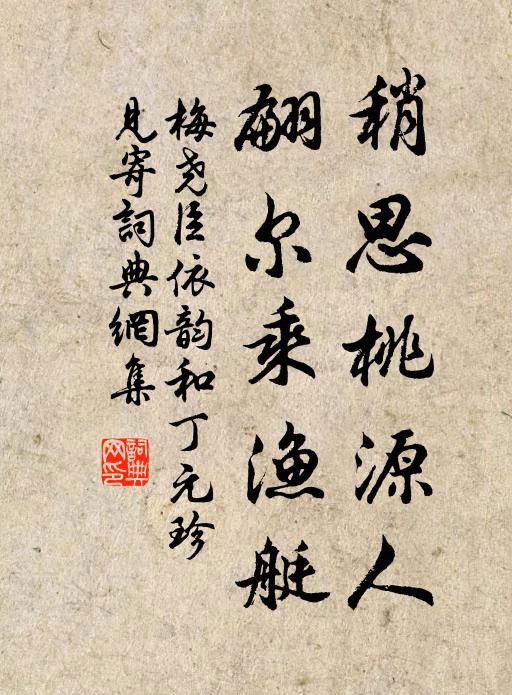 稍思桃源人
翩尔乘渔艇
梅尧臣依韵和丁元珍
見寄詞典網集
詞典网印